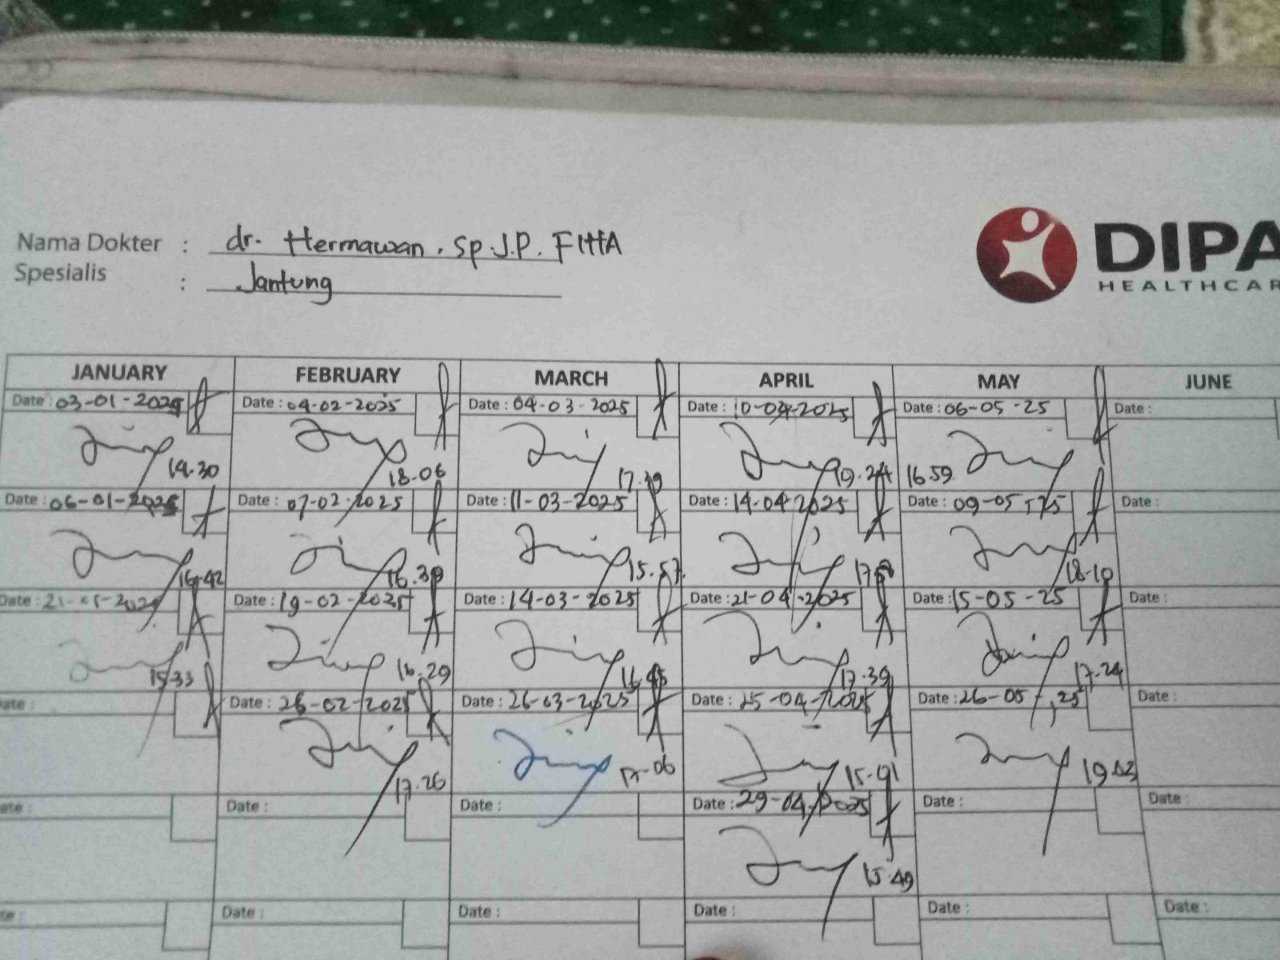 Nama Dokter : dr. Hermawan. Sp.J.P. FIHA
Spesialis : Jantung
DIPA
HEALTHCAR
JANUARY FEBRUARY MARCH APRIL MAY JUNE
Date : 03-01-2025 Date : 04-02-2025 Date : 04-03-2025 Date : 10-04-2025 Date : 06-05-25 Date :
14.30 18.06 17.39 19.24 16.59
Date : 06-01-2025 Date : 07-02-2025 Date : 11-03-2025 Date : 14-04-2025 Date : 09-05-25 Date :
16.42 16.39 15.57 18.10
Date : 21-01-2025 Date : 19-02-2025 Date : 14-03-2025 Date : 21-04-2025 Date : 15-05-25 Date :
15.33 16.29 16.45 17.39 17.24
ate : Date : 26-02-2025 Date : 26-03-2025 Date : 25-04-2025 Date : 26-05-25 Date :
17.26 17.06 15.01 19.03
ate : Date : Date : Date : 29-04-2025 Date : Date :
15.49
te : Date : Date : Date : Date : Date :